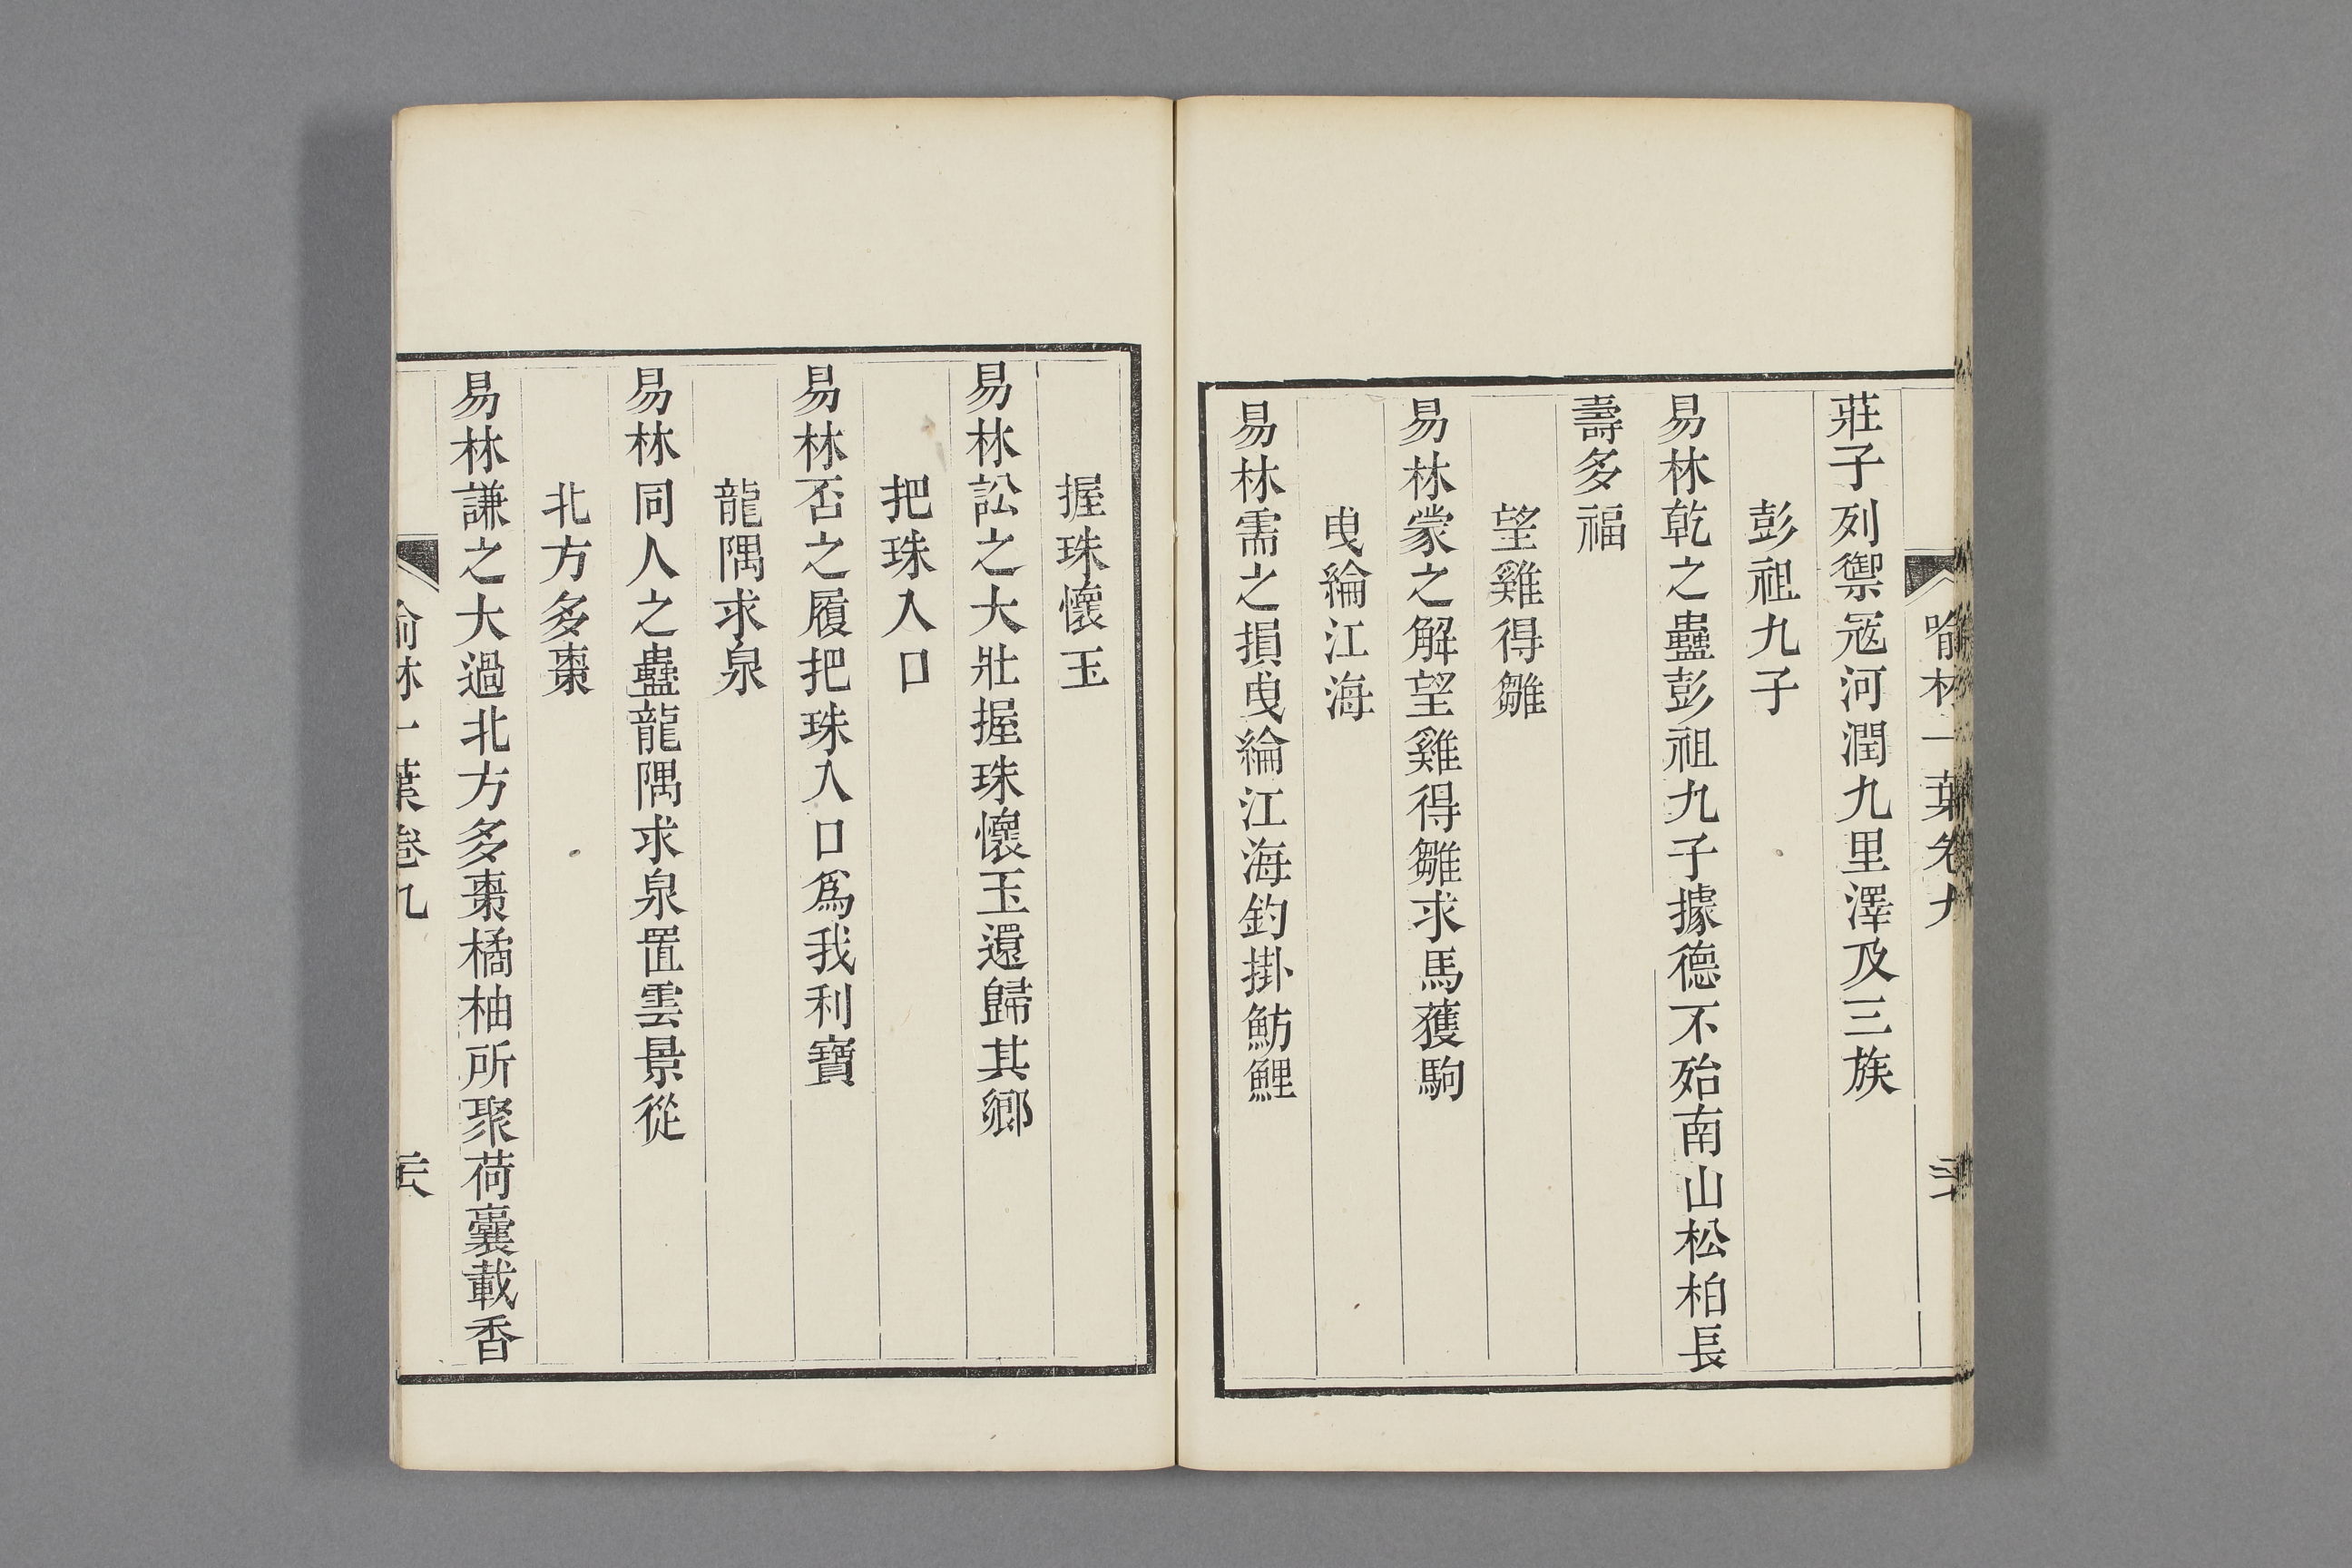 莊子列禦寇河潤九里澤及三族
彭祖九子
易林乾之蠱彭祖九子據德不殆南山松柏長
壽多福
望雞得雛
易林蒙之解望雞得雛求馬獲駒
曳綸江海
易林需之損曳綸江海釣掛魴鯉
握珠懷玉
易林訟之大壯握珠懷玉還歸其鄉
把珠入口
易林否之履把珠入口爲我利寶
龍隅求泉
易林同人之蠱龍隅求泉罝雲景從
北方多棗
易林謙之大過北方多棗橘柚所聚荷囊載香
喻林一葉卷九